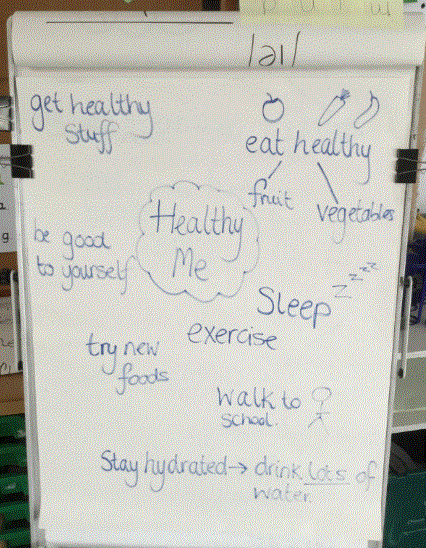 /əı/
get healthy
stuff
eat healthy
fruit
vegetables
Healthy
Me
be good
to yourself
Sleep zzzz
exercise
try new
foods
walk to
school.
Stay hydrated → drink lots of
water.